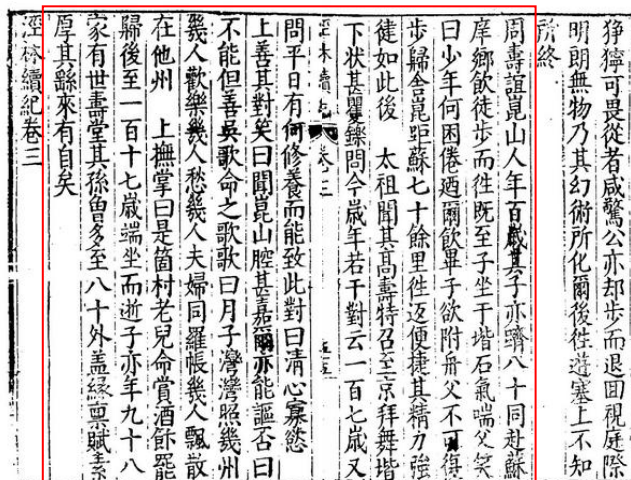 猙獰可畏從者咸驚公亦却步而退回視庭際
明朗無物乃其幻術所化爾後徃遊塞上不知
所終
周壽誼崑山人年百歲其子亦躋八十同赴蘇
庠鄉飲徒步而徃既至子坐于堦石氣喘父笑
曰少年何困倦廼爾飲畢子欲附舟父不可復
步歸舍崑距蘇七十餘里徃迈便捷其精力強
徒如此後 太祖聞其高壽特召至京拜舞堦
下狀甚矍鑠問今歲年若干對云一百七歲又
涇林續紀 卷三
問平日有何修養而能致此對曰清心寡慾
上善其對笑曰聞崑山腔甚嘉爾亦能謳否曰
不能但善吳歌命之歌歌曰月子灣灣照幾州
幾人歡樂幾人愁幾人夫婦同羅帳幾人飄散
在他州 上撫掌曰是箇村老兒命賞酒飯罷
歸後至一百十七歲端坐而逝子亦年九十八
家有世壽堂其孫曾多至八十外盖緣禀賦素
厚其繇來有自矣
涇林續紀卷三